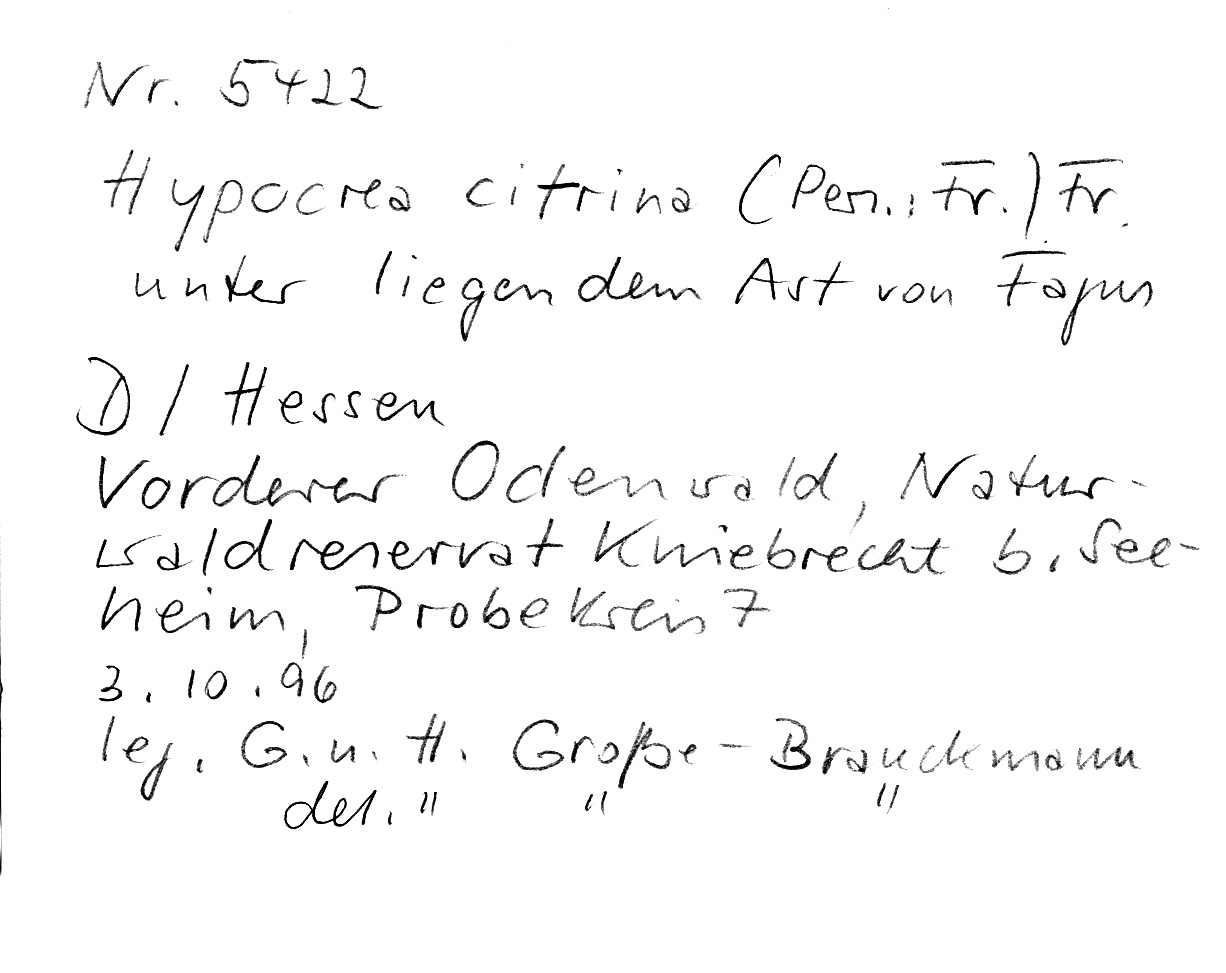 Nr. 5422
Hypocrea citrina (Pers.: Fr.) Fr.
unter liegendem Ast von Fagus
D / Hessen
Vorderer Odenwald, Natur-
waldreservat Kniebrecht b. See-
heim, Probekreis 7
3. 10. 96
leg. G. u. H. Große-Brauckmann
det. " " "